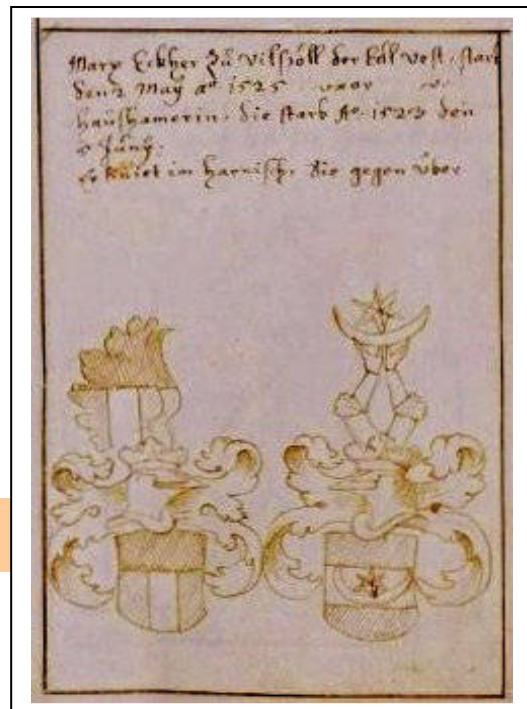 Marx Eckher zu Vilsöll der Edl vest. starb
den 2 May a° 1525 uxor
Haushamerin. die starb A°. 1523 den
Juny.
Er kniet im Harnisch. die gegen über